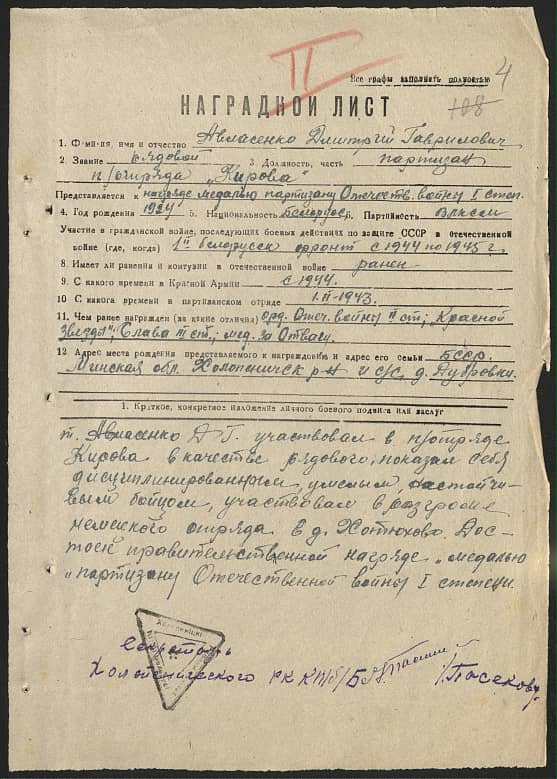 II
Все графы заполнить полностью
4
НАГРАДНОЙ ЛИСТ
108
1. Ф-ми-ия, имя и отчество Авласенко Дмитрий Гаврилович
2. Звание рядовой 3. Должность, часть партизан
п/отряда „Кирова"
Представляется к награде медалью партизану Отечеств. войны I степ.
4. Год рождения 1924 5. Национальность Белорус 6. Партийность ВЛКСМ
Участие в гражданской войне, последующих боевых действиях по защите СССР и отечественной
войне (где, когда) 1й белорусск фронт с 1944 по 1945 г.
8. Имеет ли ранения и контузии в отечественной войне ранен
9. С какого времени в Красной Армии с 1944.
10 С какого времени в партизанском отряде 1.II-1943.
11. Чем ранее награжден (за какие отличия) орд. Отеч. войны II ст; „Красной
Звезды"; Слава III ст.; мед. за Отвагу.
12 Адрес места рождения представляемого к награждению и адрес его семьи БССР.
Минская обл. Холопеничск р-н с/с. д. Дубровки.
1. Краткое, конкретное изложение личного боевого подвига или заслуг
т. Авласенко Д Г. участвовал в п/отряде
Кирова в качестве рядового, показал себя
дисциплинированным, умелым, настойчи-
вым бойцом, участвовал в разгроме
немецкого отряда в д. Хотюхово. Дос-
тоен правительственной награде „медалью
„партизану Отечественной войны I степени.
Секретарь
Холопенического РК КП/б/Б /Пасеков/